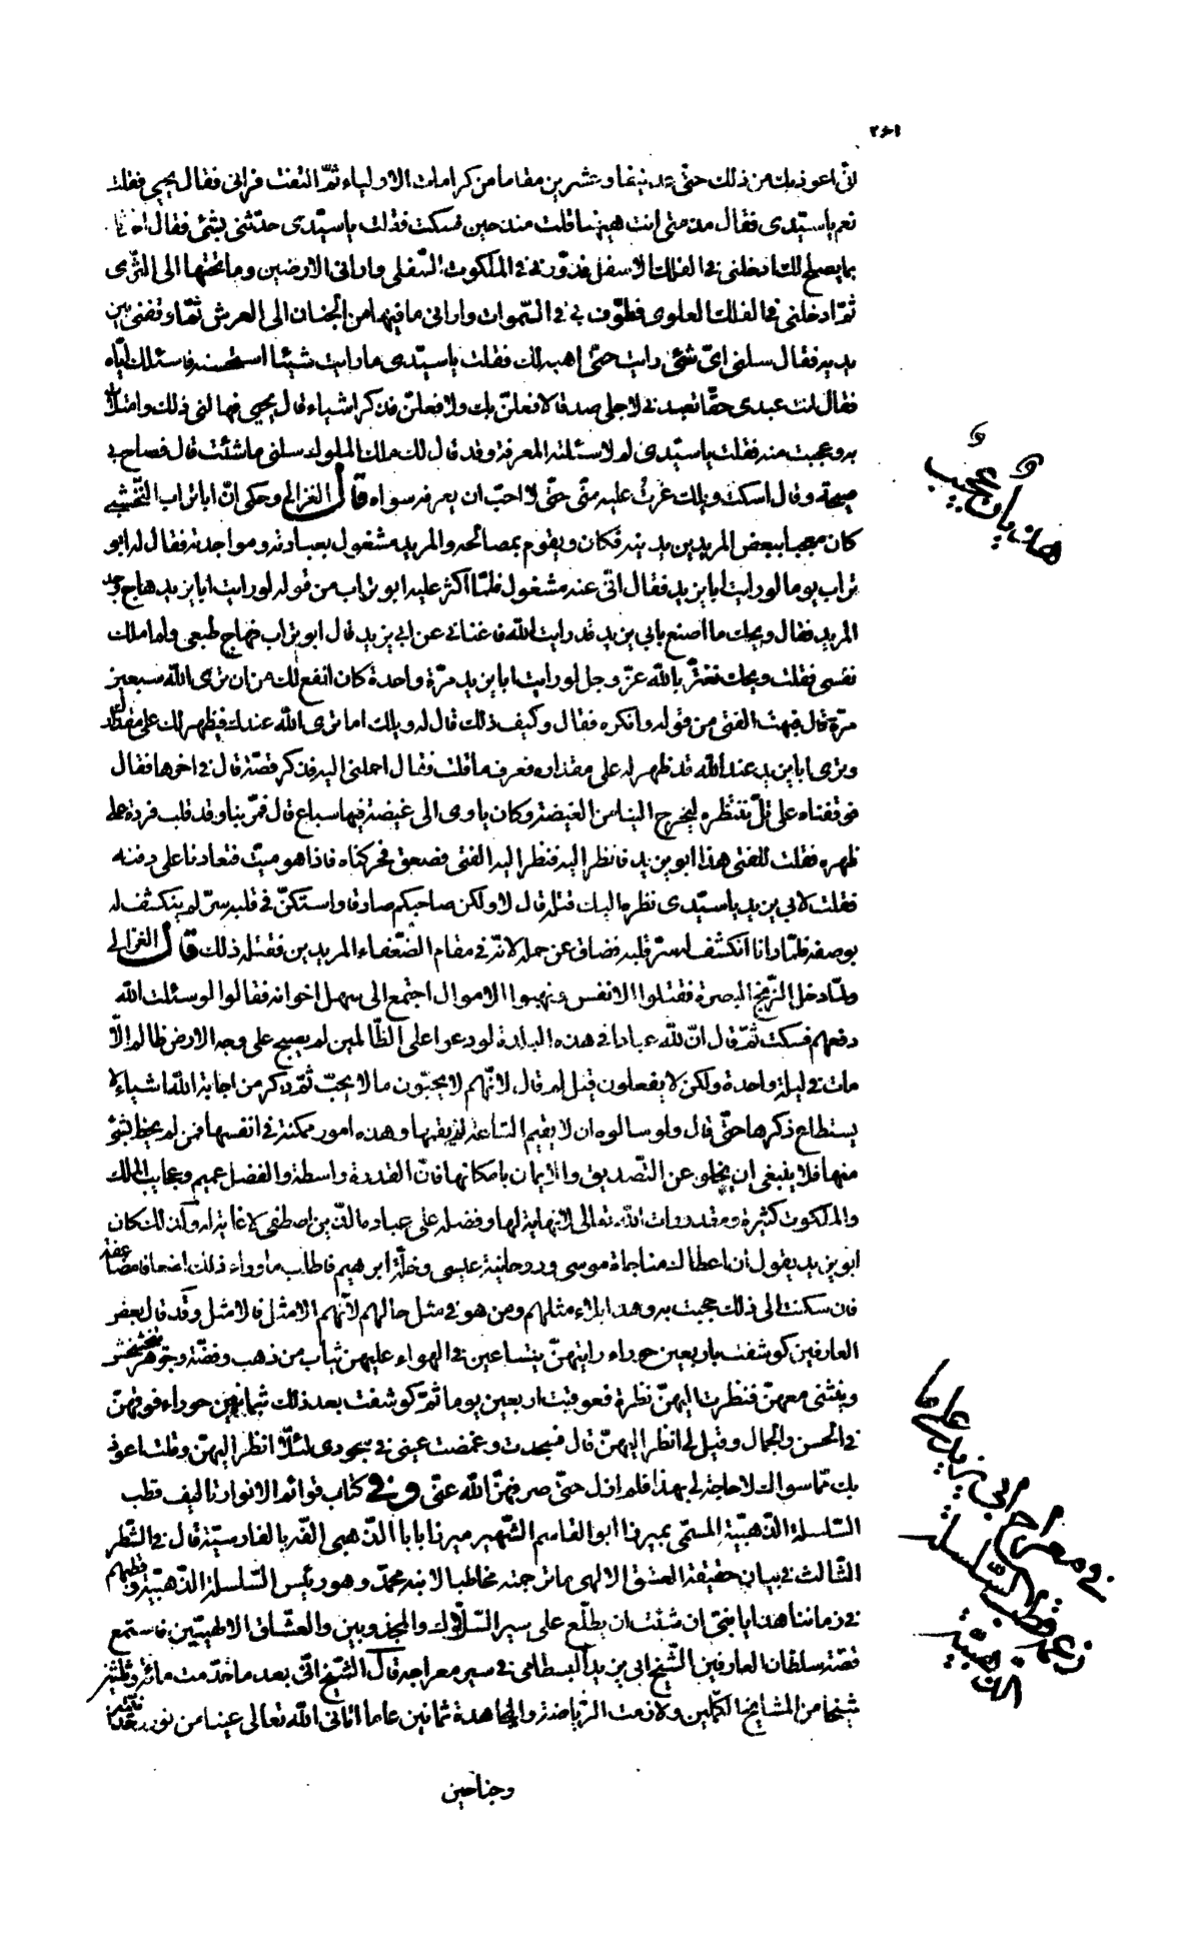 انّى اعوذ بك من ذلك حتّى عد نيفا و عشرين مقاما من كرامات الاولياء ثمّ التفت فرانى فقال يحيى فقلت
نعم يا سيّدى فقال مذ متى انت هيهنا قلت منذ حين فسكت فقلت يا سيّدى حدّثنى بشئ فقال احدّثك
بما يصلح لك ادخلنى فى الفلك الاسفل فدوّرنى فى الملكوت السّفلى و ارانى الارضين و ما تحتها الى الثّرى
ثمّ ادخلنى فى الفلك العلوى فطوّف بى فى السّموات و ارانى ما فيها من الجنان الى العرش ثمّ اوقفنى بين
يديه فقال سلنى اىّ شئ رايت حتّى اهبه لك فقلت يا سيّدى ما رايت شيئا استحسنه فاسئلك ايّاه
فقال انت عبدى حقّا تعبدنى لاجلى صدقا لافعلنّ بك و لافعلنّ فذكر اشياء قال يحيى فهالنى ذلك و امتلات
به و عجبت منه فقلت يا سيّدى لم لا سئلته المعرفة و قد قال لك ملك الملوك سلنى ما شئت قال فصاح بى
صيحة و قال اسكت ويلك غرت عليه منّى حتّى لا احبّ ان يعرفه سواه قال الغزالى و حكى انّ ابا تراب النّخشبى
كان معجبا ببعض المريدين يدنيه فكان و يقوم بمصالحه و المريد مشغول بعبادته و مواجدته فقال له ابو
تراب يوما لو رايت ابا يزيد فقال انّى عنه مشغول فلمّا اكثر عليه ابو تراب من قوله لو رايت ابا يزيد هاج وجد
المريد فقال ويحك ما اصنع بابى يزيد قد رايت الله فاغنانى عن ابى يزيد قال ابو تراب فهاج طبعى و لم املك
نفسى فقلت ويحك تغترّ بالله عزّ و جل لو رايت ابا يزيد مرّة واحدة كان انفع لك من ان ترى الله سبعين
مرّة قال فبهت الفتى من قوله و انكره فقال و كيف ذلك قال له ويلك اما ترى الله عندك فيظهر لك على مقدارك
و ترى ابا يزيد عند الله قد ظهر له على مقداره فعرف ما قلت فقال احملنى اليه فذكر قصّة قال فى اخرها فقال
فوقفناه على تلّ ننتظره ليخرج الينا من الغيضة و كان ياوى الى غيضة فيها سباع قال فمرّ بنا و قد قلب فروة على
ظهره فقلت للفتى هذا ابو يزيد فانظر اليه فنظر اليه الفتى فصعق فحركناه فاذا هو ميّت فتعاونا على دفنه
فقلت لابى يزيد يا سيّدى نظره اليك قتله قال لا و لكن صاحبكم صادقا و استكنّ فى قلبه سرّ لم ينكشف له
بوصفه فلمّا رانا انكشف له سرّ قلبه فضاق عن حمله لانّه فى مقام الضّعفاء المريدين فقتله ذلك قال الغزالى
و لمّا دخل الزّنج البصرة فقتلوا الانفس و نهبوا الاموال اجتمع الى سهل اخوانه فقالوا لو سئلت الله
دفعهم فسكت ثمّ قال انّ لله عبادا فى هذه البلدة لو دعوا على الظّالمين لم يصبح على وجه الارض ظالم الّا
مات فى ليلة واحدة و لكن لا يفعلون قيل لم قال لانّهم لا يحبّون ما لا يحبّ ثمّ ذكر من اجابة الله اشياء لا
يستطاع ذكرها حتّى قال و لو سالوه ان لا يقيم السّاعة لم يقمها و هذه امور ممكنة فى انفسها فمن لم يحظ بشئ
منها فلا ينبغى ان يخلو عن التّصديق و الايمان بامكانها فانّ القدرة واسطة و الفضل عميم و عجايب الملك
و الملكوت كثيرة و مقدورات الله تعالى لا نهاية لها و فضله على عباده الذين اصطفى لا غاية له و لذلك كان
ابو يزيد يقول ان اعطاك مناجاة موسى و روحانية عيسى و خلّة ابرهيم فاطلب ما وراء ذلك اضعافا مضاعفة
فان سكنت الى ذلك حجبت به و هذا بلاء مثلهم و من هو فى مثل حالهم لانّهم الامثل فالامثل و قد قال بعض
العارفين كوشفت باربعين حوراء رايتهنّ يتساعين فى الهواء عليهنّ ثياب من ذهب و فضّة و جوهر يتخشخش
و ينثنى معهنّ فنظرت اليهنّ نظرة فعوقبت اربعين يوما ثمّ كوشفت بعد ذلك بثمانين حوراء فوقهنّ
فى الحسن و الجمال و قيل لى انظر اليهنّ قال فسجدت و غمضت عينى فى سجودى لئلّا انظر اليهنّ و قلت اعوذ
بك ممّا سواك لا حاجة لى بهذا فلم ازل حتّى صرفهنّ الله عنّى و فى كتاب قوائم الانوار تاليف قطب
السّلسلة الذّهبيّة المسمّى بميرزا ابو القاسم الشّهير ميرزا بابا الذّهبى القّربالفارسيّة قال فى الشّطر
الثّالث فى بيان حقيقة العشق الالهى ما ترجمته مخاطبا لابنه محمّد و هو رئيس السّلسلة الذّهبيّة و قطبهم
فى زماننا هذا يا بنىّ ان شئت ان يطّلع على سير السّلّاك و المجذوبين و العشّاق الالهيّين فاستمع
قصّة سلطان العارفين الشّيخ ابى يزيد البسطامى فى سير معراجه قال الشّيخ انّى بعد ما خدمت مائة و ثلثين
شيخا من المشايخ الكمّلين و لازمت الرّياضة و المجاهدة ثمانين عاما اتانى الله تعالى عينا من نور
و جناحين
هذيان عجيب
فى معراج ابى يزيد على ما
زعمه قطب السّلسلة
الذهبيّة